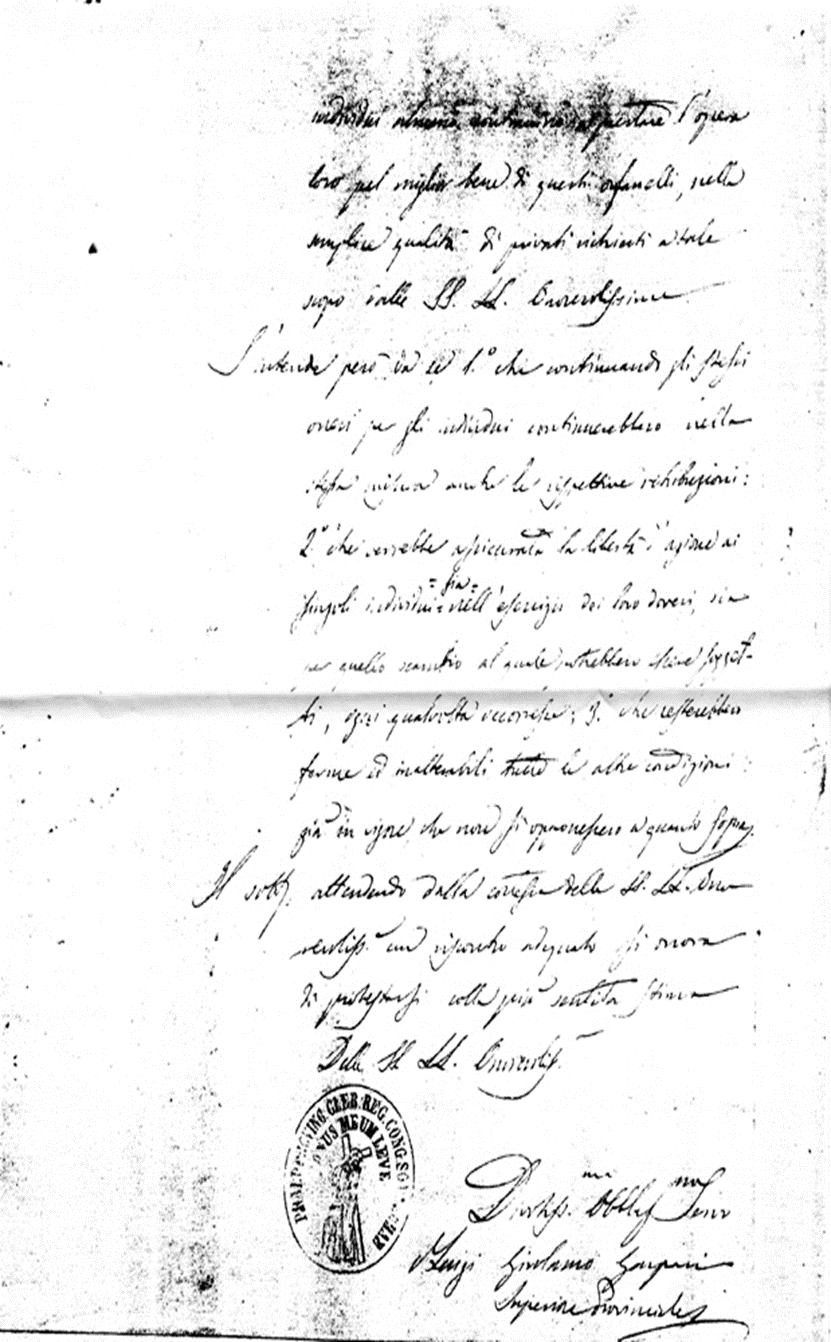 individui almeno continuino a prestare l'opera
loro pel miglior bene di questi orfanelli, nella
semplice qualità di privati richiesti a tale
scopo dalle SS. LL. Onorevolissime
S'intende però da sè 1.° che continuando gli stessi
oneri per gli individui continuerebbero nella
stessa misura anche le rispettive retribuzioni:
2.° che verrebbe assicurata la libertà d'azione ai
singoli individui = sia = nell'esercizio dei loro doveri, sia
per quello scambio al quale potrebbero essere sogget-
ti, ogni qualvolta occorresse; 3.° che resterebbero
ferme ed inalterabili tutte le altre condizioni
già in vigore che non si opponessero a quanto sopra.
Il sott. attendendo dalla cortesia delle SS. LL. Ono-
revoliss. un riscontro adeguato si onora
di protestarsi colla più sentita stima
Delle SS. LL. Onorevoliss.
PRAEP. PROVINC. CLER. REG. CONG. SOM
ONUS MEUM LEVE
Devotiss.mo Obblig.mo Servo
Luigi Girolamo Gaspari
Superiore Provinciale